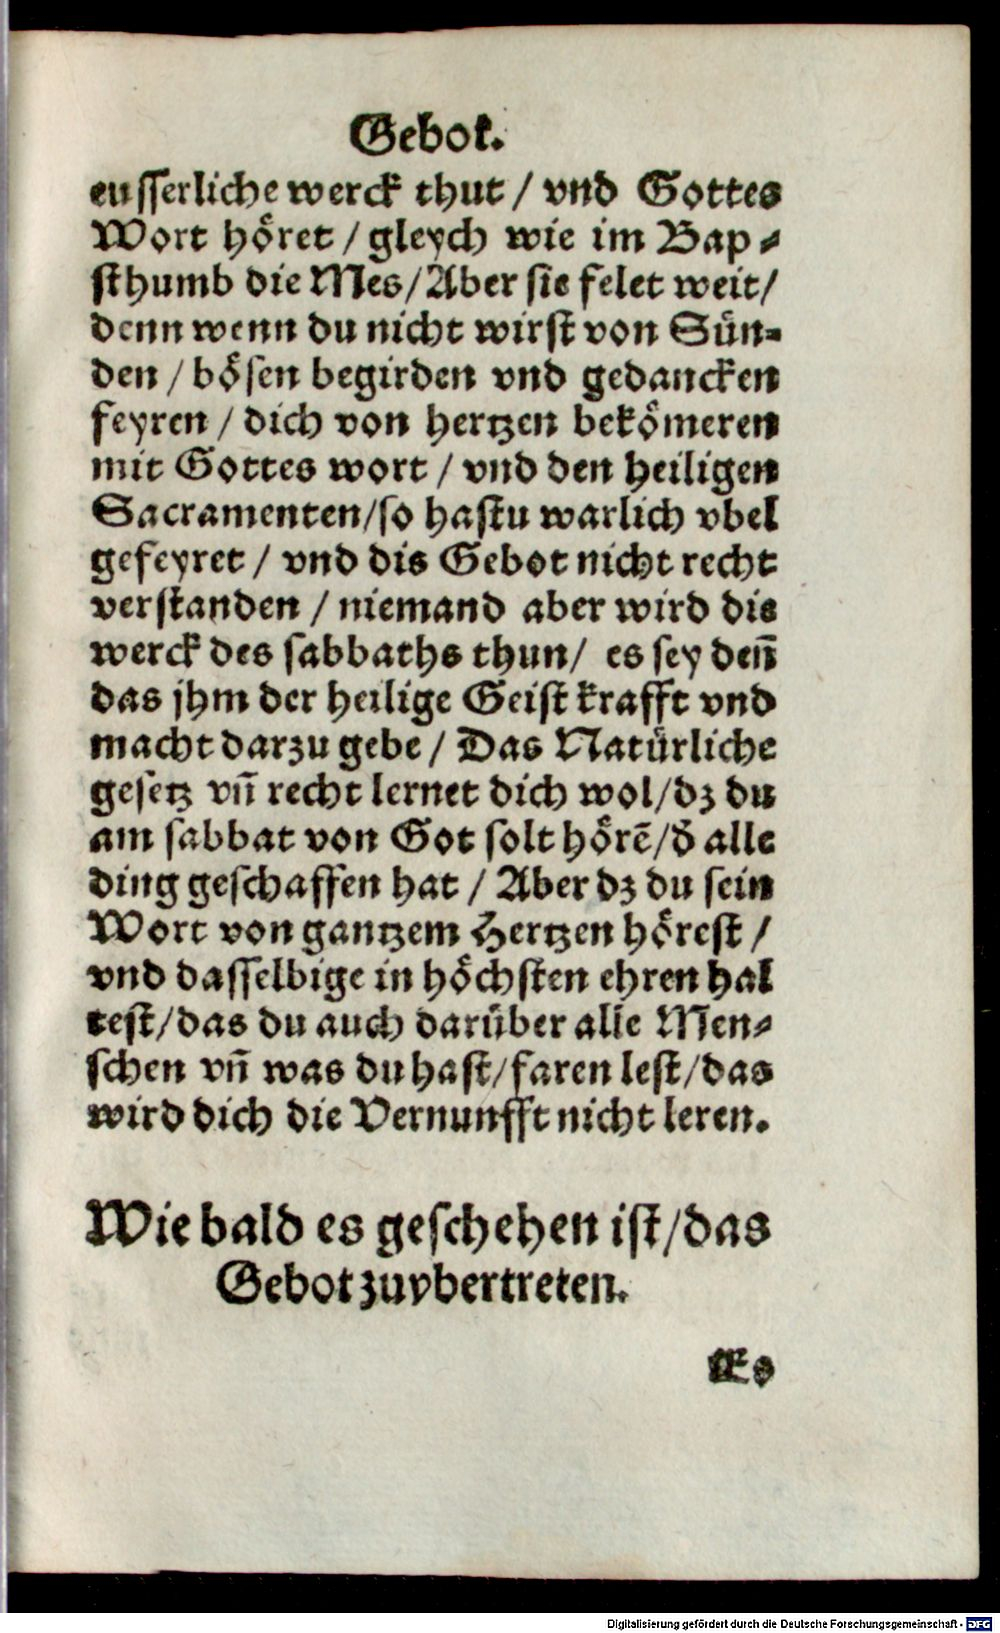 Gebot.
eusserliche werck thut / vnd Gottes
Wort höret / gleych wie im Bap⸗
sthumb die Mes / Aber sie felet weit /
denn wenn du nicht wirst von Sün⸗
den / bösen begirden vnd gedancken
feyren / dich von hertzen bekömeren
mit Gottes wort / vnd den heiligen
Sacramenten / so hastu warlich vbel
gefeyret / vnd dis Gebot nicht recht
verstanden / niemand aber wird dis
werck des sabbaths thun / es sey deñ
das jhm der heilige Geist krafft vnd
macht darzu gebe / Das Natürliche
gesetz vñ recht lernet dich wol / dz du
am sabbat von Got solt hörẽ / d̃ alle
ding geschaffen hat / Aber dz du sein
Wort von gantzem Hertzen hörest /
vnd dasselbige in höchsten ehren hal
test / das du auch darüber alle Men⸗
schen vñ was du hast / faren lest / das
wird dich die Vernunfft nicht leren.
Wie bald es geschehen ist / das
Gebot zuvbertreten.
Es
Digitalisierung gefördert durch die Deutsche Forschungsgemeinschaft - DFG